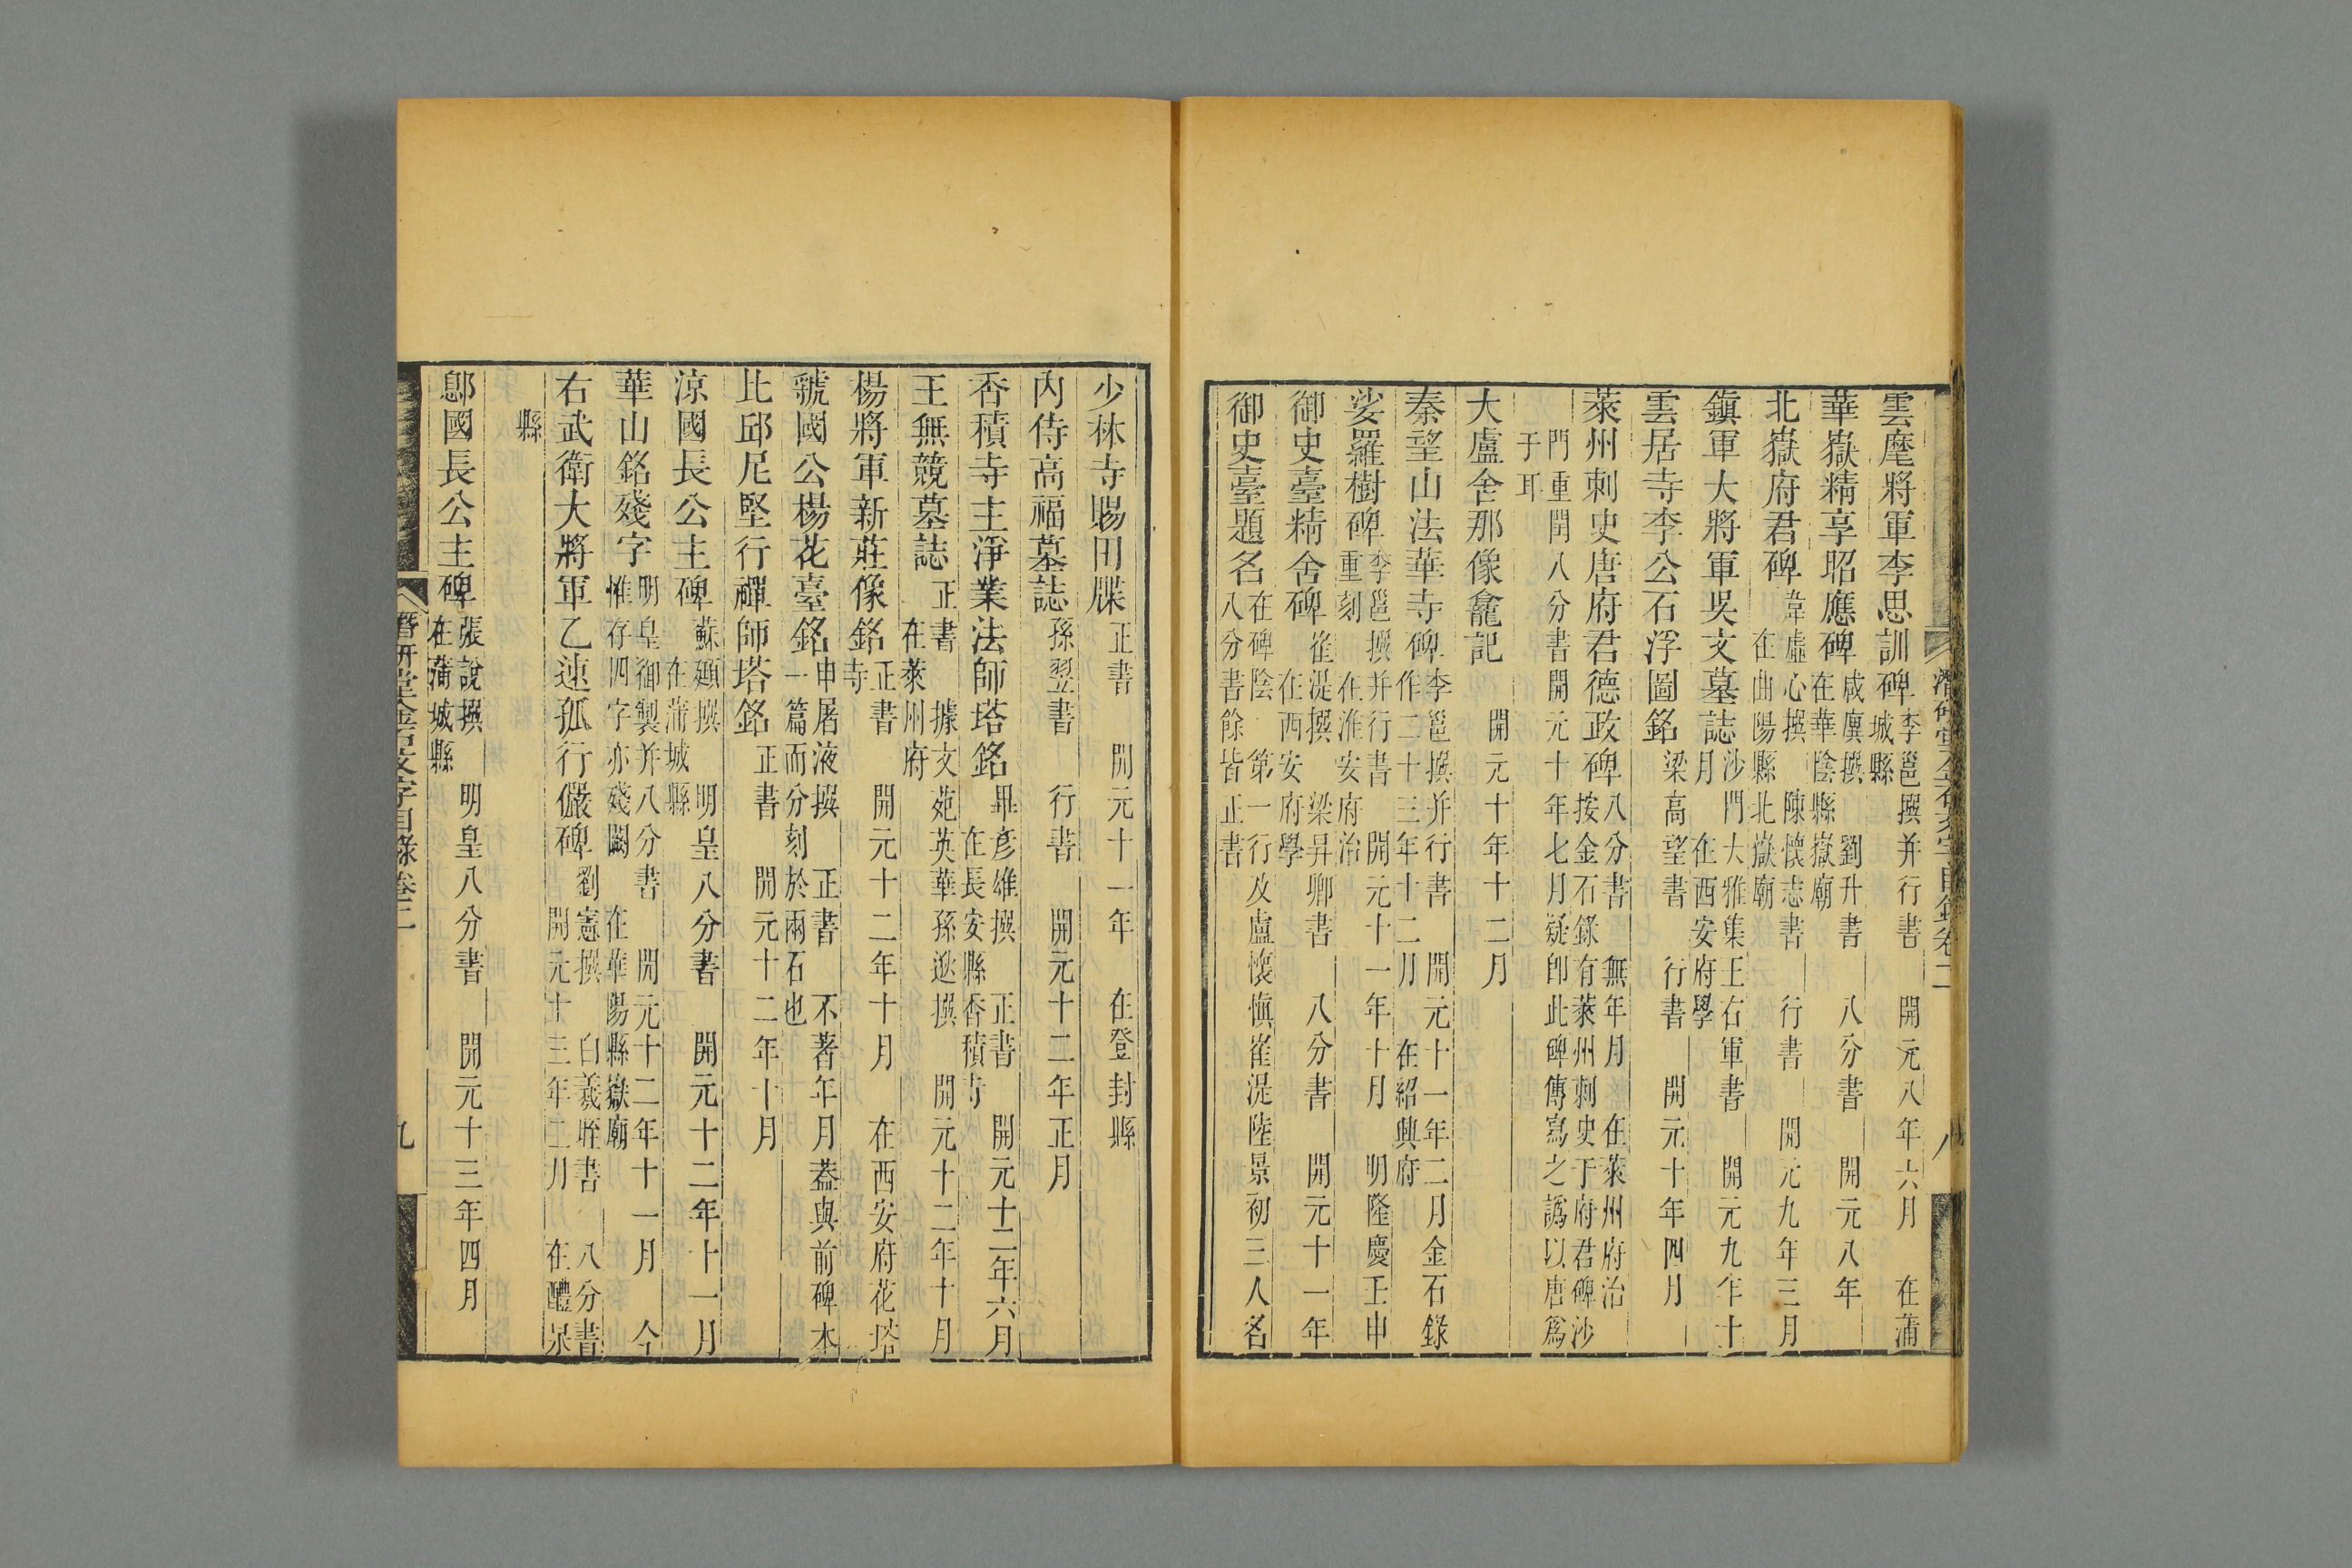 雲麾將軍李思訓碑 李邕撰并行書 開元八年六月 在蒲城縣
華嶽精享昭應碑 咸廙撰 劉升書 八分書 開元八年 在華陰縣嶽廟
北嶽府君碑 韋虛心撰 陳懷志書 行書 開元九年三月 在曲陽縣北嶽廟
鎮軍大將軍吳文墓誌 沙門大雅集王右軍書 開元九年十月 在西安府學
雲居寺李公石浮圖銘 梁高望書 行書 開元十年四月
萊州刺史唐府君德政碑 八分書 無年月 在萊州府治 按金石錄有萊州刺史于府君碑沙
門重閏八分書開元十年七月疑卽此碑傳寫之譌以唐爲
于耳
大盧舍那像龕記 開元十年十二月
秦望山法華寺碑 李邕撰并行書 開元十一年二月金石錄作二十三年十二月 在紹興府
娑羅樹碑 李邕撰并行書 開元十一年十月 明隆慶壬申重刻 在淮安府治
御史臺精舍碑 崔湜撰 梁昇卿書 八分書 開元十一年 在西安府學
御史臺題名 在碑陰 第一行及盧懷慎崔湜陸景初三人名八分書餘皆正書
潛研堂金石文字目錄卷二 八
少林寺賜田牒 正書 開元十一年 在登封縣
內侍高福墓誌 孫翌書 行書 開元十二年正月
香積寺主淨業法師塔銘 畢彥雄撰 正書 開元十二年六月 在長安縣香積寺
王無競墓誌 正書 據文苑英華孫逖撰 開元十二年十月 在萊州府
楊將軍新莊像銘 正書 開元十二年十月 在西安府花塔寺
虢國公楊花臺銘 申屠液撰 正書 不著年月葢與前碑本一篇而分刻於兩石也
比邱尼堅行禪師塔銘 正書 開元十二年十月
涼國長公主碑 蘇頲撰 明皇八分書 開元十二年十一月 在蒲城縣
華山銘殘字 明皇御製并八分書 開元十二年十一月 今惟存四字亦殘闕 在華陽縣嶽廟
右武衛大將軍乙速孤行儼碑 劉憲撰 白羲晊書 八分書 開元十三年二月 在醴泉
縣
鄎國長公主碑 張說撰 明皇八分書 開元十三年四月 在蒲城縣
潛研堂金石文字目錄卷二 九